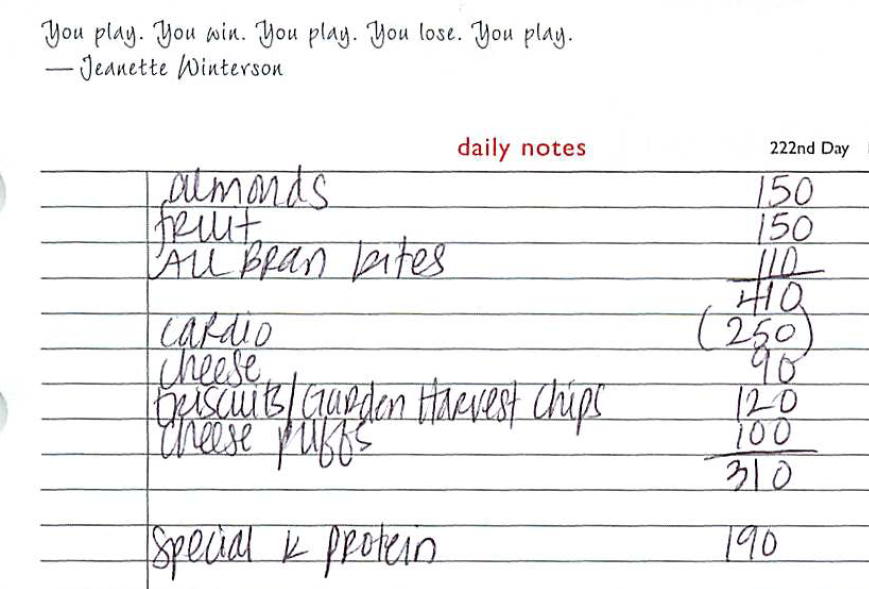 You play. You win. You play. You lose. You play.
— Jeanette Winterson
daily notes 222nd Day
almonds 150
fruit 150
All Bran bites 110
410
cardio (250)
cheese 90
biscuits/Garden Harvest Chips 120
cheese puffs 100
310
Special K protein 190